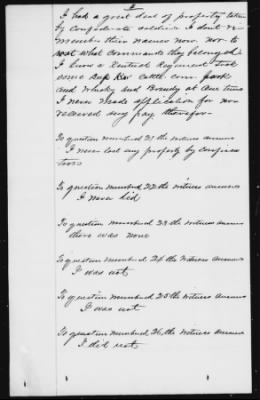 2
I had a great deal of property taken
by Confederate soldiers I don't re-
member their names now nor to
what commands they belonged.
I know a Rentral Regiment took
some Cattle corn pork
and Whisky and Brandy at One time
I never made application for nor
received any pay therefor-
To question numbered 21 the witness answers
I never lost any property by confisca
tion
To question numbered 22 the witness answers
I never did
To question numbered 23 the witness answers
there was none
To question numbered 24 the witness answers
I was not
To question numbered 25 the witness answers
I was not
To question numbered 26 the witness answers
I did not